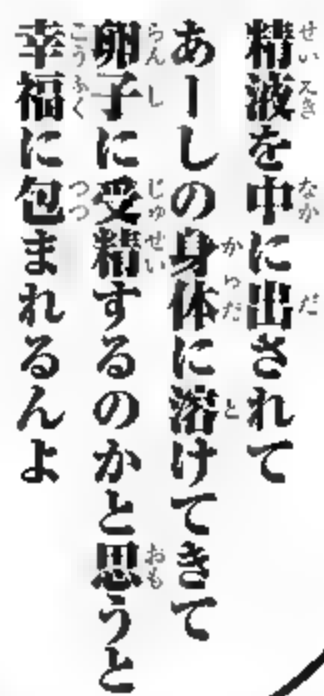 精液を中に出されて
あーしの身体に溶けてきて
卵子に受精するのかと思うと
幸福に包まれるんよ